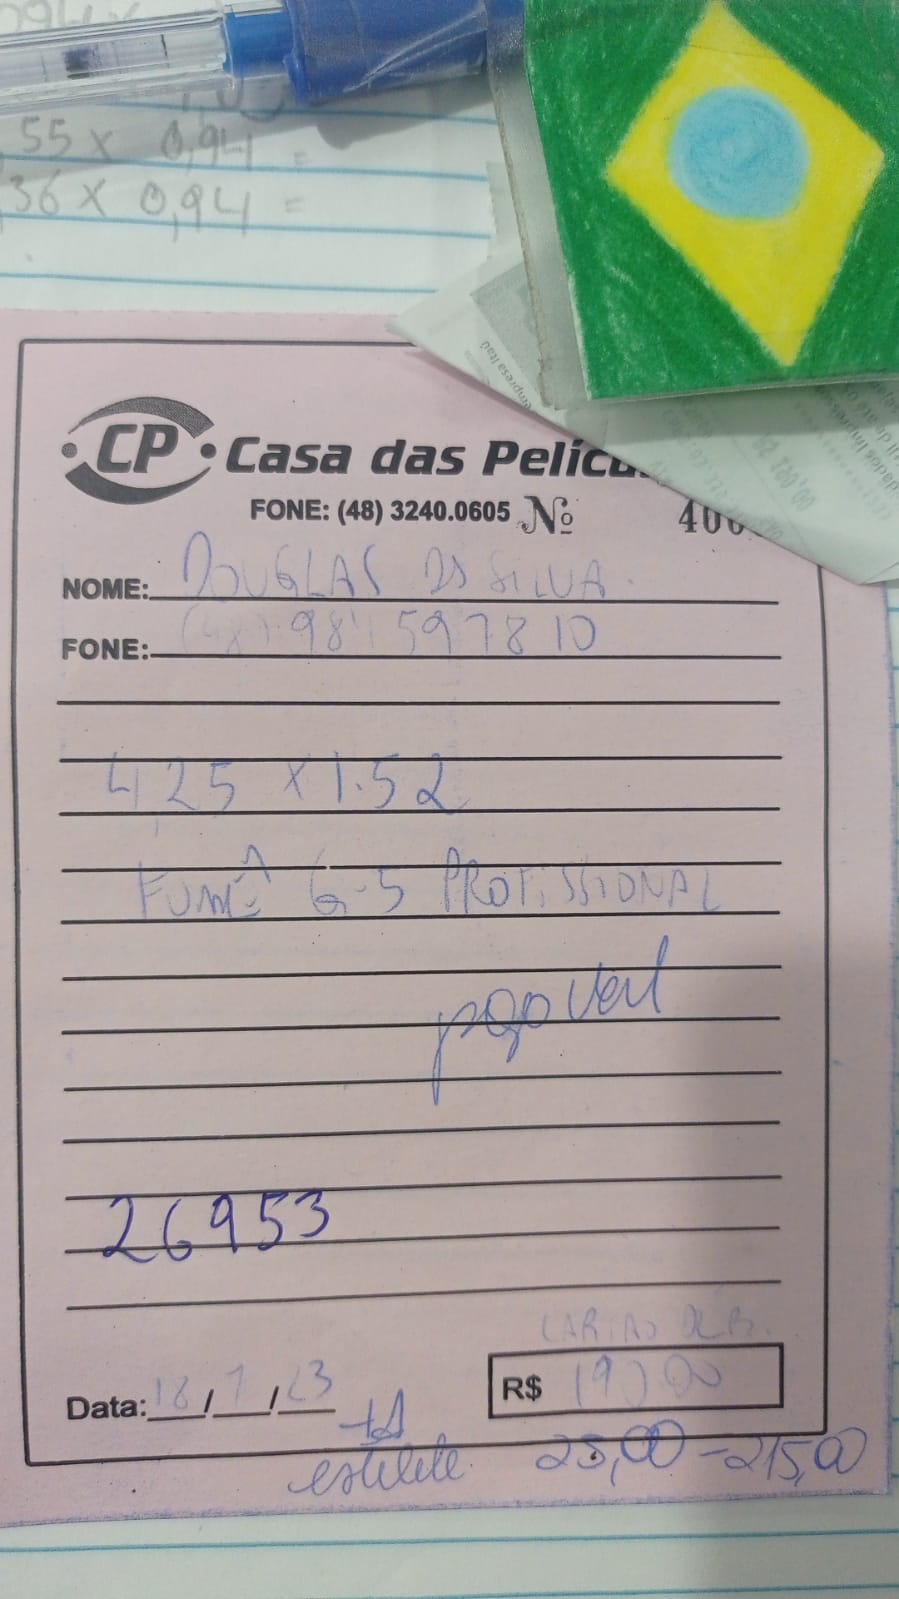 55 x 0,94 =
,36 x 0,94 =
CP
Casa das Pelícu
FONE: (48) 3240.0605 Nº 400
NOME: DOUGLAS DA SILVA.
FONE: (48) 984597810
4,25 x 1.52
FUMÊ G-5 PROFISSIONAL
pago
26953
CARTAO DEB.
Data: 18/7/23
R$ 190,00
+1
estilete 25,00 - 215,00